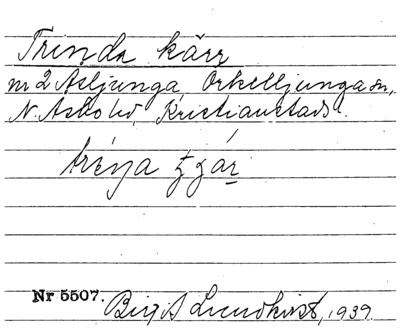 Trinda kärr
nr 2 Asljunga Örkelljunga sn,
N. Åsbo hd, Kristianstads l.
Nr 5507. Birgit Lundkvist, 1939